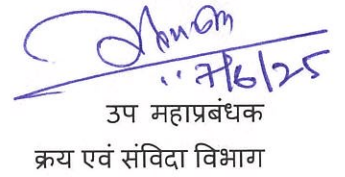 7/6/25
उप महाप्रबंधक
क्रय एवं संविदा विभाग